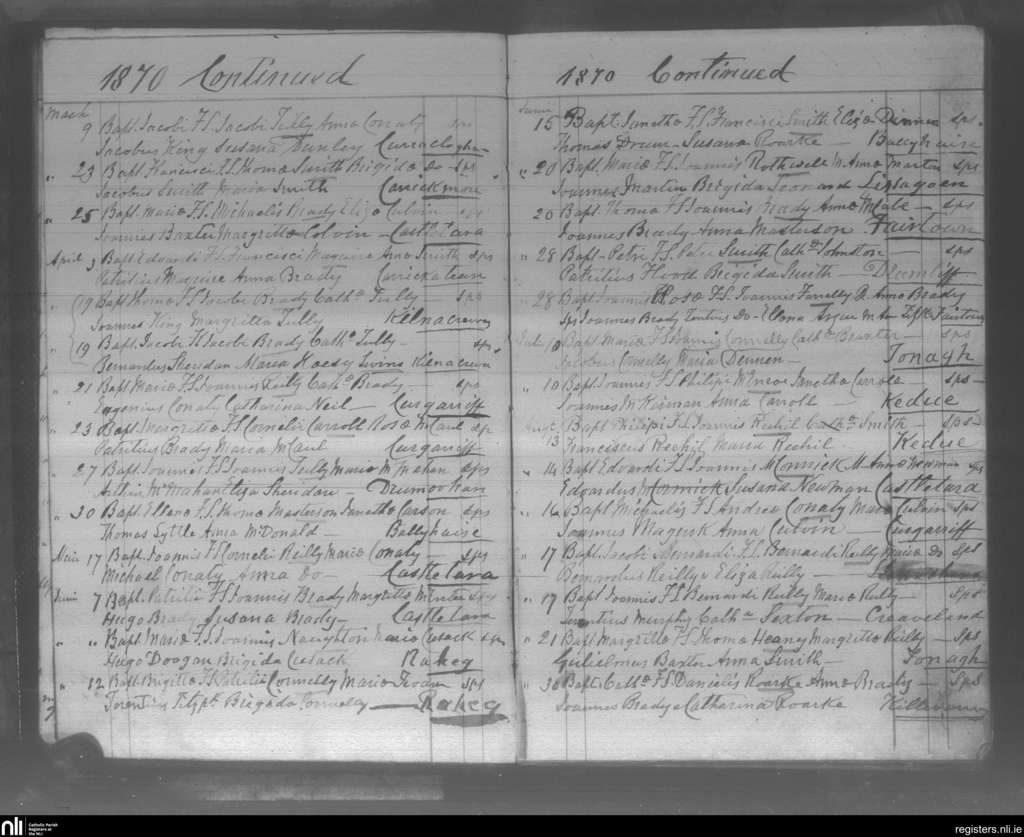 1870 Continued
March
9 Bapt. Jacobi F.S. Jacobi Tully Anna Conaty sps
Jacobus King Susana Dunley Curraclogha
" 23 Bapt. Francisci F.S. Thomæ Smith Brigida do - sps
Jacobus Smith Maria Smith Carrickmore
" 25 Bapt. Mariæ F.S. Michaelis Brady Eliza Culvin sps
Joannes Baxter Margritta Colvin - Castle Tara
April 3 Bapt. Edwardi F.S. Francisci Maguire Anna Smith sps
Patritius Maguire Anna Brady
19 Bapt. Thomæ F.S. Jacobi Brady Cath^a Tully - sps
Joannes King Margritta Tully Kilnacreeva
" 19 Bapt. Jacobi F.S. Jacobi Brady Cath^a Tully - sps
Bernardus Sheridan Maria Twins
" 21 Bapt. Mariæ F.S. Joannis Reilly Cath^a Brady - sps
Eugenius Conaty Catharina Neil - Curgarriff
" 23 Bapt. Margrettæ F.S. Cornelii Carroll Rosæ McCaul sps
Patritius Brady Maria McCaul Curgarriff
" 27 Bapt. Joannis F.S. Joannis Tully Maria McMahan sps
McMahan Eliza Sheridan -
" 30 Bapt. Ellenæ F.S. Thomæ Masterson Janetta Carson sps
Thomas Lyttle Anna McDonald - Ballyhaise
17 Bapt. Joannis F.S. Cornelii Reilly Mariæ Conaty - sps
Michael Conaty Anna Do - Castletara
Junii 7 Bapt. Patritii F.S. Joannis Brady Margritta McEntee sps
Hugo Brady Susana Brady - Castletara
" " Bapt. Mariæ F.S. Joannis Naughton Maria Cusack sps
Hugo Doogan Brigida Cusack Rakeg
" 12 Bapt. Brigittæ F.S. Patritii Connelly Mariæ sps
Brigida Connelly - Rakeg
1870 Continued
Junii
15 Bapt. Janettæ F.S. Francisci Smith Eliza Dinnen sps.
Thomas Drum - Susana Roarke - Ballyhaise
" 20 Bapt. Mariæ F.S. M. Anna Martin sps
Joannes Martin Brigida Leonard Lisgagoan
20 Bapt. Thomæ F.S. Joannis Brady Anna McCabe - sps
Joannes Brady Anna Masterson Fairtown
" 28 Bapt. Petri F.S. Petri Smith Cath^a Johnston - sps
Patritius Flood Brigida Smith -
" 28 Bapt. Joannis Rosæ F.S. Joannis Farrelly & Anna Brady
sps Joannes Brady Do - Ellena Fairtown
10 Bapt. Mariæ F.S. Connelly Cath^a Baxter - sps
Jacobus Connelly Maria Dennen - Tonagh
" 10 Bapt. Joannis F.S. Philipi McEnroe Janetta Carrole - sps -
Joannes McKiernan Anna Carroll - Kedue
13 Bapt. Philipi F.S. Joannis Reehil Cath^a Smith - sps -
Franciscus Reehil Maria Reehil - Kedue
" 14 Bapt. Edvardi F.S. Joannis McCormick M. Anna Newman sps
Edvardus McCormick Susana Newman Castletara
" 16 Bapt. Michaelis F.S. Andreæ Conaty Maria Culvin sps
Joannes Anna Culvin - Curgarriff
" 17 Bapt. Jacobi Bernardi F.S. Bernardi Reilly Mariæ do sps
Bernardus Reilly & Eliza Reilly -
" 17 Bapt. Joannis F.S. Bernardi Reilly Mariæ Reilly - sps
Murphy Cath^a Sexton - Creaveland
" 21 Bapt. Margrittæ F.S. Thomæ Heaney Margritta Reilly - sps
Gulielmus Baxter Anna Smith - Tonagh
" 30 Bapt. Cathæ F.S. Danielis Roarke Anna Brady - sps
Joannes Brady & Catharina Roarke
nli Catholic Parish Registers at the NLI
registers.nli.ie